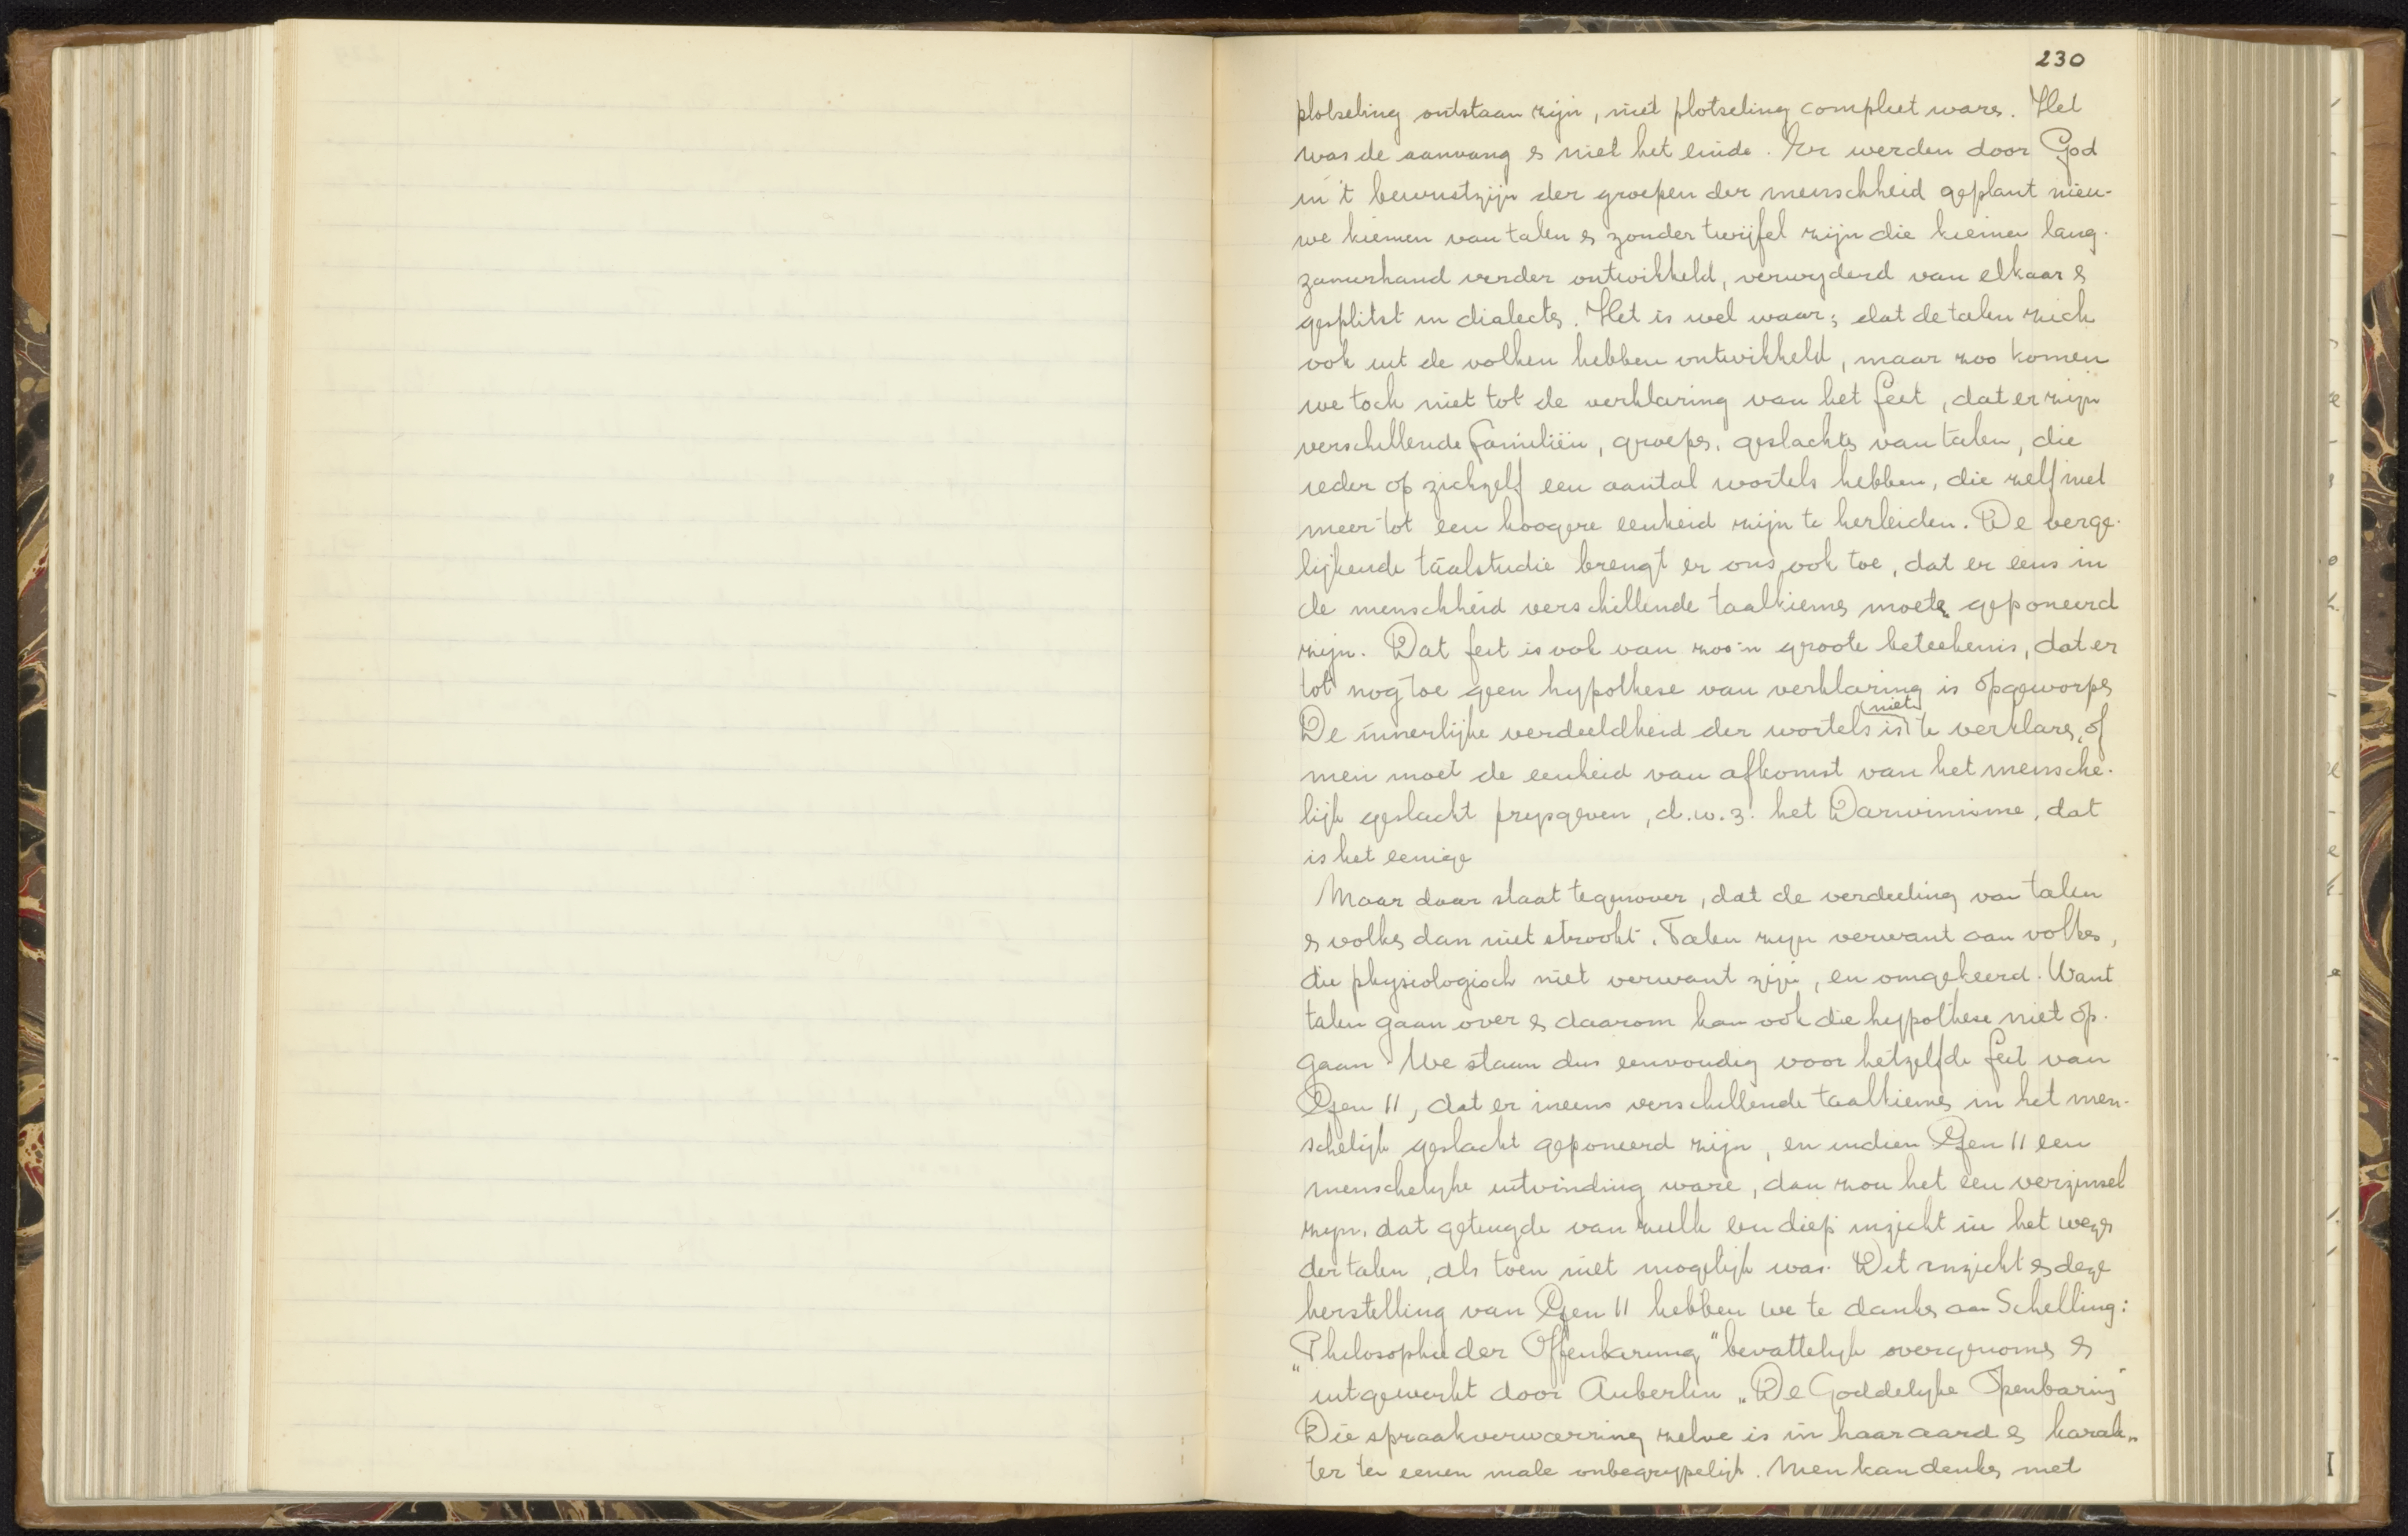 230
plotseling ontstaan zijn, niet plotseling compleet waren. Het
was de aanvang en niet het einde. Er werden door God
in 't bewustzijn der groepen der menschheid geplant nieu-
we kiemen van talen en zonder twijfel zijn die kiemen lang-
zamerhand verder ontwikkeld, verwyderd van elkaar en
gesplitst in dialecten. Het is wel waar, dat de talen zich
ook uit de volken hebben ontwikkeld, maar zoo komen
we toch niet tot de verklaring van het feit, dat er zijn
verschillende familiën, groepen, geslachten van talen, die
ieder op zichzelf een aantal wortels hebben, die zelf niet
meer tot een hoogere eenheid zijn te herleiden. De verge-
lijkende taalstudie brengt er ons ook toe, dat er eens in
de menschheid verschillende taalkiemen moeten geponeerd
zijn. Dat feit is ook van zoo'n groote beteekenis, dat er
tot nog toe geen hypothese van verklaring is opgeworpen
De innerlijke verdeeldheid der wortels is niet te verklaren, of
men moet de eenheid van afkomst van het mensche-
lijk geslacht prysgeven, d.w.z. het Darwinisme, dat
is het eenige
Maar daar staat tegenover, dat de verdeeling van talen
en volken dan niet strookt. Talen zyn verwant aan volken,
die physiologisch niet verwant zijn, en omgekeerd. Want
talen gaan over en daarom kan ook die hypothese niet op-
gaan. We staan dus eenvoudig voor hetzelfde feit van
Gen 11, dat er ineens verschillende taalkiemen in het men-
schelijk geslacht geponeerd zijn, en indien Gen 11 een
menschelyke uitvinding ware, dan zou het een verzinsel
zyn, dat getuigde van zulk een diep inzicht in het wezen
der talen, als toen niet mogelijk was. Dit inzicht en deze
herstelling van Gen 11 hebben we te danken aan Schelling:
"Philosophie der Offenbarung" bevattelyk overgenomen en
uitgewerkt door Auberlen „De Goddelyke Openbaring"
Die spraakverwarring zelve is in haar aard en karak-
ter ten eenen male onbegrypelijk. Men kan denken met